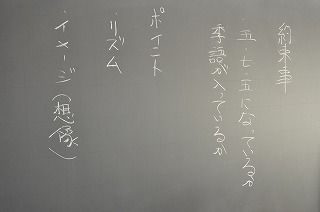 約束事
・五・七・五になっているか
季語が入っているか
ポイント
・リズム
・イメージ(想像)